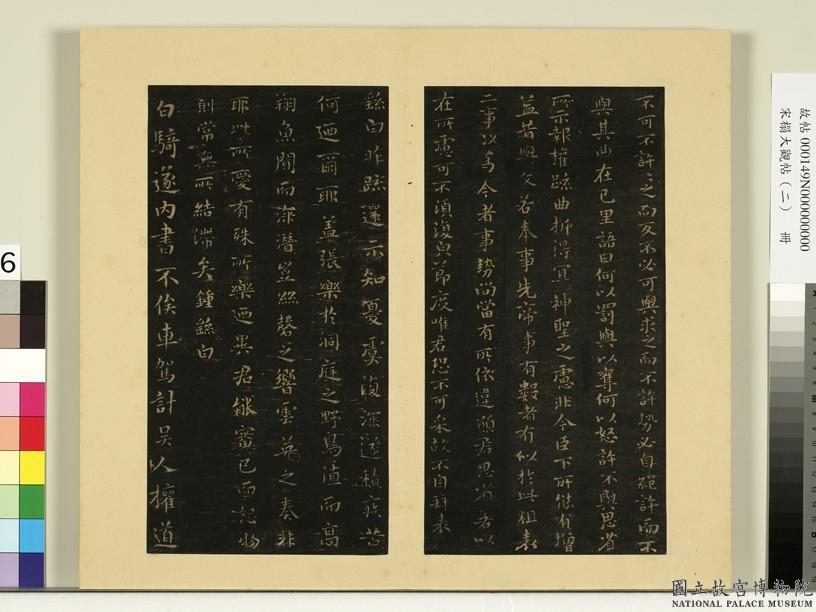 不可不許許之而反不必可與求之而不許勢必自絕許而不
與其曲在己里語曰何以罰與以奪何以怒許不與思省
所示報權疏曲折得宜神聖之慮非今臣下所能有增
益昔與文若奉事先帝事有數者有似於此粗表
二事以為今者事勢尚當有所依違願君思省若以
在所慮可不須復與節度唯君恐不可采故不自拜表
繇白昨疏還示知憂虞復深遂積疾苦
何迺爾耶蓋張樂於洞庭之野鳥值而高
翔魚聞而深潛豈絲磬之響雲英之奏非
耶此所愛有殊所樂迺異君能審己而恕物
則常無所結滯矣鍾繇白
白騎遂內書不俟車駕計吳人權道
6
故帖 000149N000000000
宋榻大觀帖（二） 冊
國立故宮博物院
NATIONAL PALACE MUSEUM